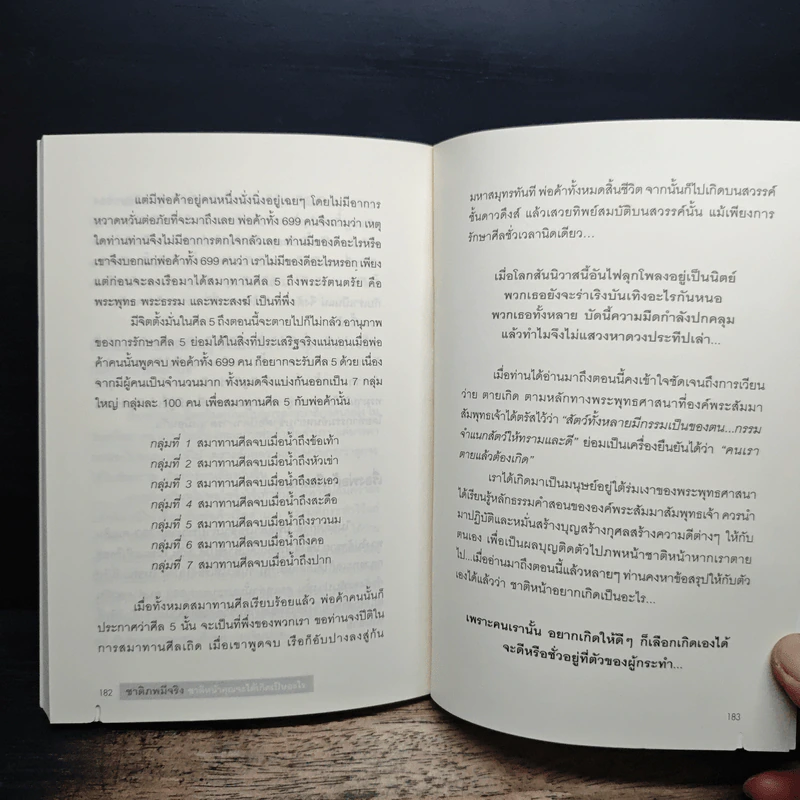 แต่มีพ่อค้าอยู่คนหนึ่งนั่งนิ่งอยู่เฉยๆ โดยไม่มีอาการ
หวาดหวั่นต่อภัยที่จะมาถึงเลย พ่อค้าทั้ง 699 คนจึงถามว่า เหตุ
ใดท่านท่านจึงไม่มีอาการตกใจกลัวเลย ท่านมีของดีอะไรหรือ
เขาจึงบอกแก่พ่อค้าทั้ง 699 คนว่า เราไม่มีของดีอะไรหรอก เพียง
แต่ก่อนจะลงเรือมาได้สมาทานศีล 5 ถึงพระรัตนตรัย คือ
พระพุทธ พระธรรม และพระสงฆ์ เป็นที่พึ่ง
มีจิตตั้งมั่นในศีล 5 ถึงตอนนี้จะตายไปก็ไม่กลัว อานุภาพ
ของการรักษาศีล 5 ย่อมได้ในสิ่งที่ประเสริฐจริงแน่นอนเมื่อพ่อ
ค้าคนนั้นพูดจบ พ่อค้าทั้ง 699 คน ก็อยากจะรับศีล 5 ด้วย เนื่อง
จากมีผู้คนเป็นจำนวนมาก ทั้งหมดจึงแบ่งกันออกเป็น 7 กลุ่ม
ใหญ่ กลุ่มละ 100 คน เพื่อสมาทานศีล 5 กับพ่อค้านั้น
กลุ่มที่ 1 สมาทานศีลจบเมื่อน้ำถึงข้อเท้า
กลุ่มที่ 2 สมาทานศีลจบเมื่อน้ำถึงหัวเข่า
กลุ่มที่ 3 สมาทานศีลจบเมื่อน้ำถึงสะเอว
กลุ่มที่ 4 สมาทานศีลจบเมื่อน้ำถึงสะดือ
กลุ่มที่ 5 สมาทานศีลจบเมื่อน้ำถึงราวนม
กลุ่มที่ 6 สมาทานศีลจบเมื่อน้ำถึงคอ
กลุ่มที่ 7 สมาทานศีลจบเมื่อน้ำถึงปาก
เมื่อทั้งหมดสมาทานศีลเรียบร้อยแล้ว พ่อค้าคนนั้นก็
ประกาศว่าศีล 5 นั้น จะเป็นที่พึ่งของพวกเรา ขอท่านจงปีติใน
การสมาทานศีลเถิด เมื่อเขาพูดจบ เรือก็อัปปางลงสู่ก้น
182 ชาติภพมีจริง ชาติหน้าคุณจะได้เกิดเป็นอะไร
มหาสมุทรทันที พ่อค้าทั้งหมดสิ้นชีวิต จากนั้นก็ไปเกิดบนสวรรค์
ชั้นดาวดึงส์ แล้วเสวยทิพย์สมบัติบนสวรรค์นั้น แม้เพียงการ
รักษาศีลชั่วเวลานิดเดียว...
เมื่อโลกสันนิวาสนี้อันไฟลุกโพลงอยู่เป็นนิตย์
พวกเธอยังจะร่าเริงบันเทิงอะไรกันหนอ
พวกเธอทั้งหลาย บัดนี้ความมืดกำลังปกคลุม
แล้วทำไมจึงไม่แสวงหาดวงประทีปเล่า...
เมื่อท่านได้อ่านมาถึงตอนนี้คงเข้าใจชัดเจนถึงการเวียน
ว่าย ตายเกิด ตามหลักทางพระพุทธศาสนาที่องค์พระสัมมา
สัมพุทธเจ้าได้ตรัสไว้ว่า “สัตว์ทั้งหลายมีกรรมเป็นของตน...กรรม
จำแนกสัตว์ให้ทรามและดี” ย่อมเป็นเครื่องยืนยันได้ว่า “คนเรา
ตายแล้วต้องเกิด”
เราได้เกิดมาเป็นมนุษย์อยู่ใต้ร่มเงาของพระพุทธศาสนา
ได้เรียนรู้หลักธรรมคำสอนขององค์พระสัมมาสัมพุทธเจ้า ควรนำ
มาปฏิบัติและหมั่นสร้างบุญสร้างกุศลสร้างความดีต่างๆ ให้กับ
ตนเอง เพื่อเป็นผลบุญติดตัวไปภพหน้าชาติหน้าหากเราตาย
ไป...เมื่ออ่านมาถึงตอนนี้แล้วหลายๆ ท่านคงหาข้อสรุปให้กับตัว
เองได้แล้วว่า ชาติหน้าอยากเกิดเป็นอะไร...
เพราะคนเรานั้น อยากเกิดให้ดีๆ ก็เลือกเกิดเองได้
จะดีหรือชั่วอยู่ที่ตัวของผู้กระทำ...
183